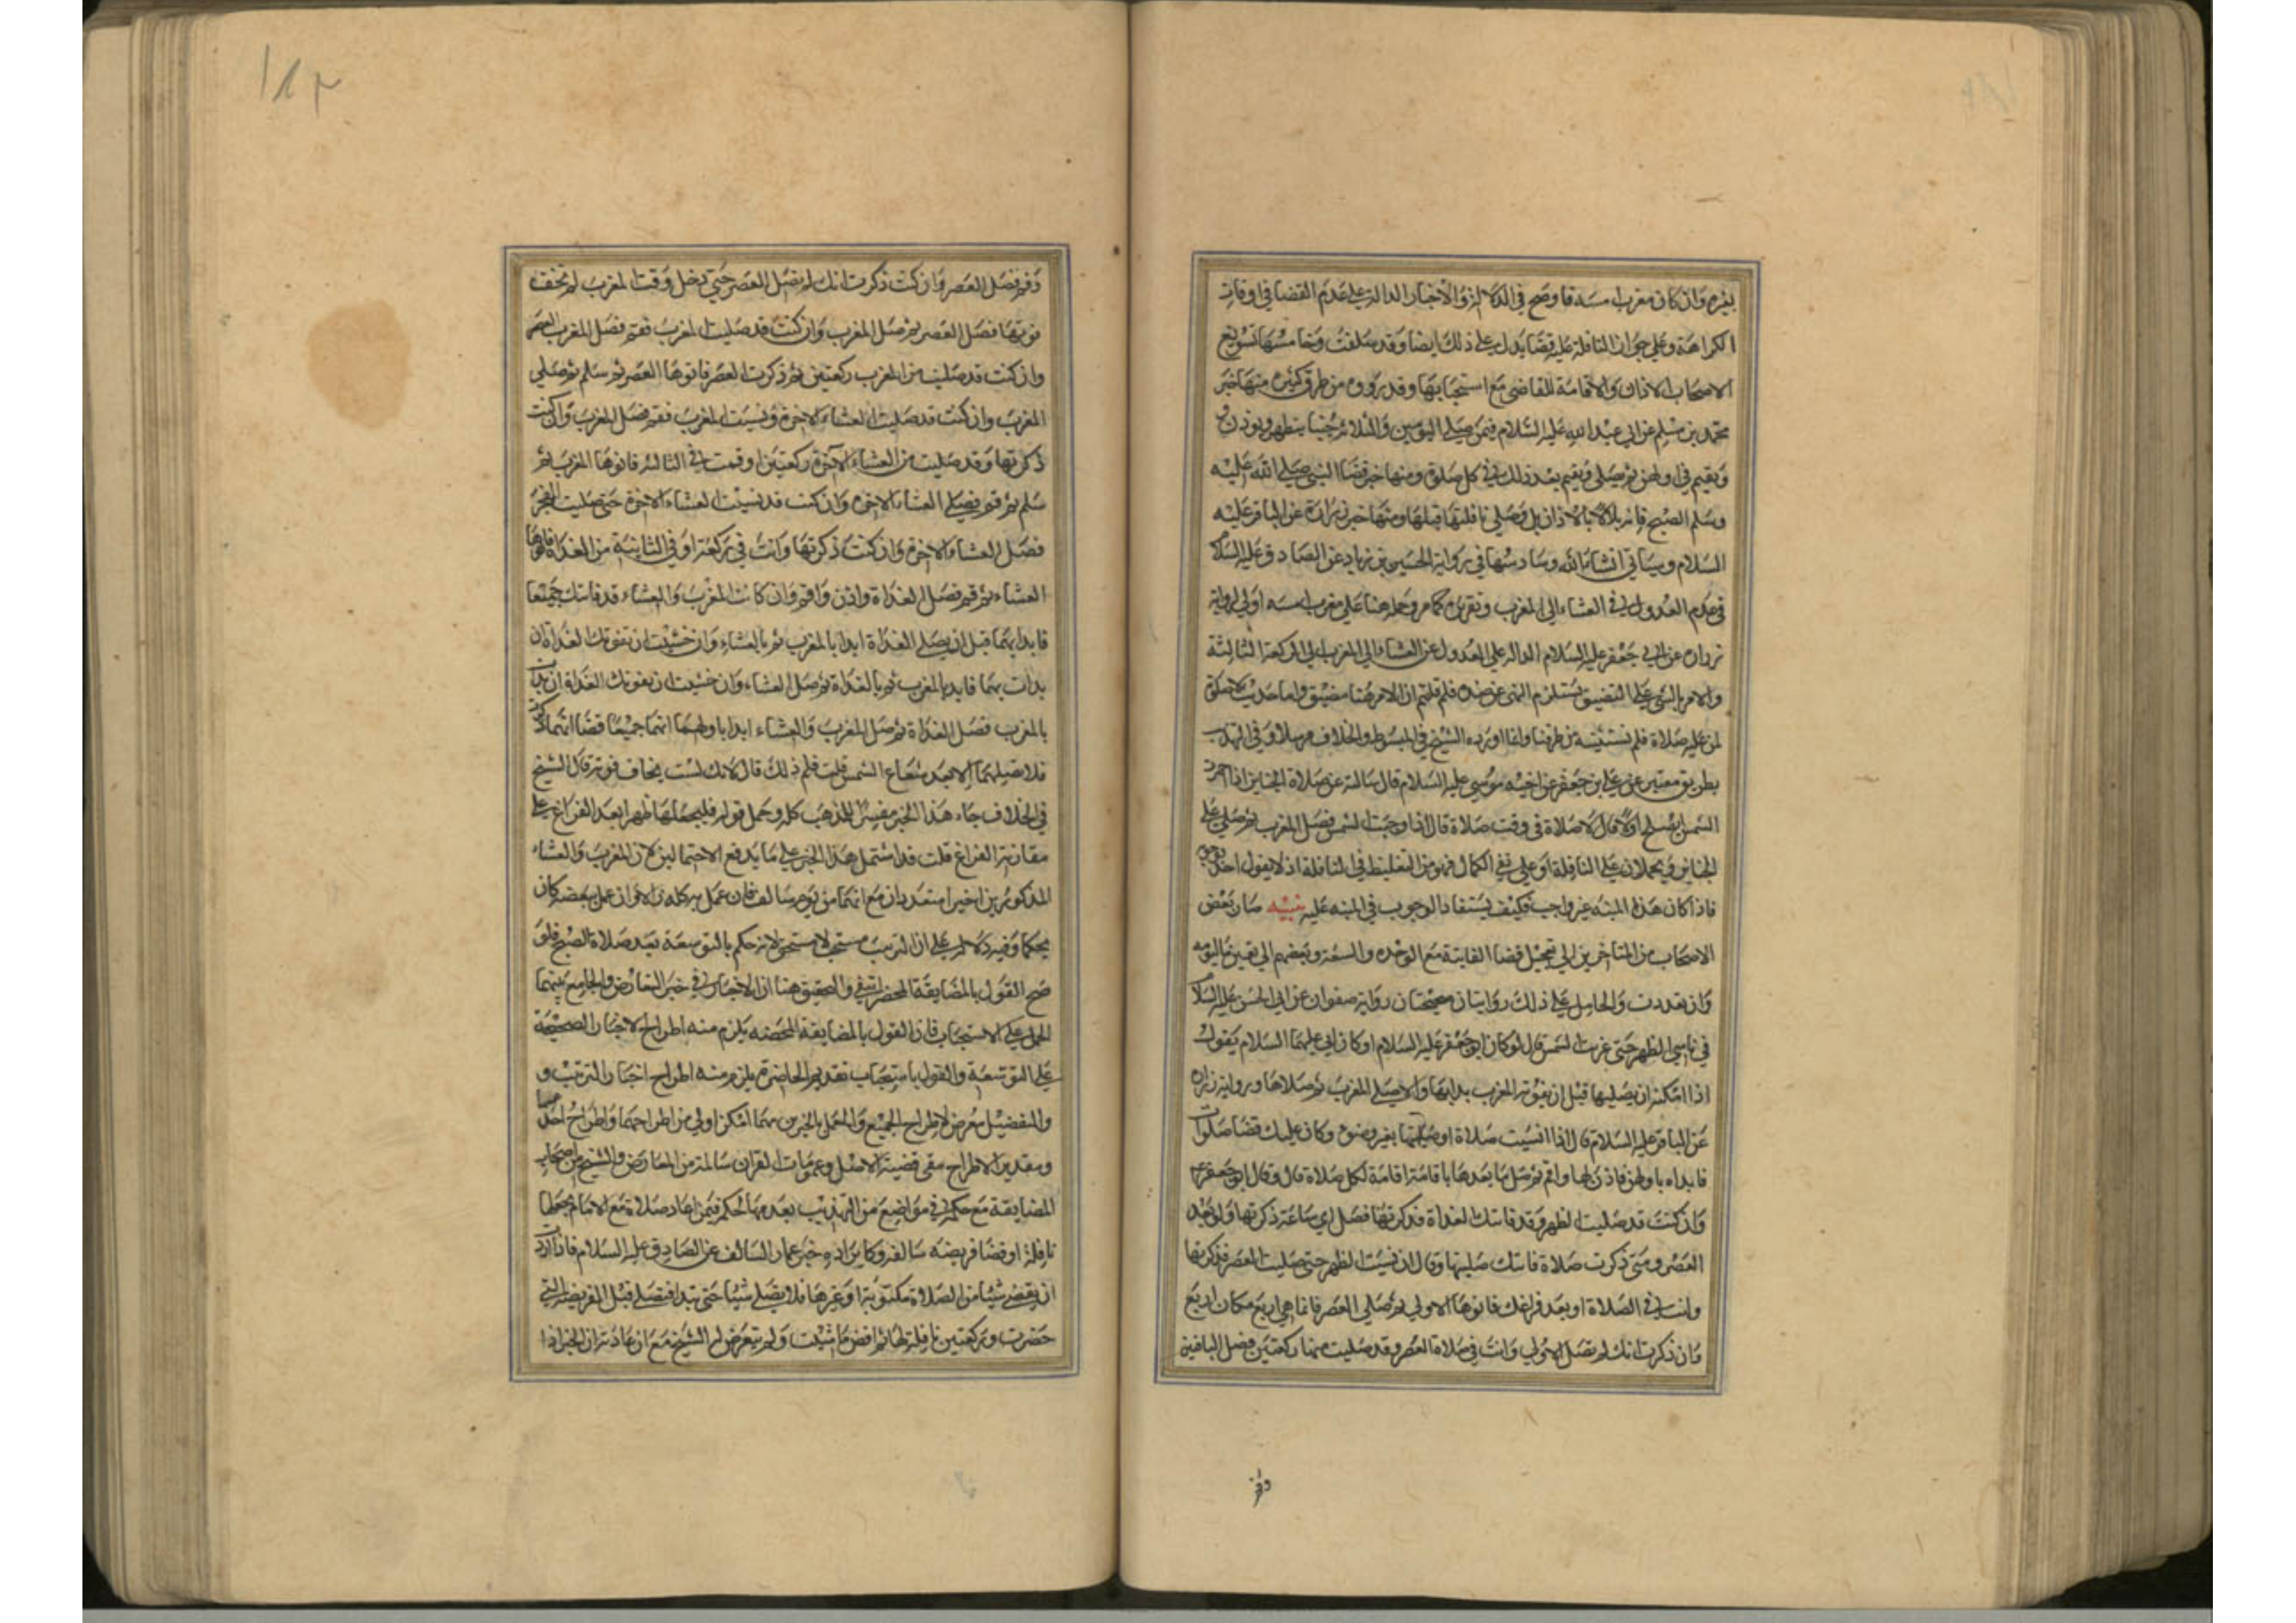 بغيره وان كان مغرب امسه فاوضح في الدلالة والاخبار الدالة على عدم القضا في اوقات
الكراهة وعلى جواز النافلة لمن عليه قضا يدل على ذلك ايضا وقد سلفت وخامسها تسويغ
الاصحاب الاذان والاقامة للقاضي مع استحبابها وقد رووه من طرق كثيرة منها خبر
محمد بن مسلم عن ابي عبد الله عليه السلام فيمن صلى اليومين والثلاثة جنبا يتطهر ويوذن
ويقيم في اولهن ثم يصلي ويقيم بعد ذلك في كل صلوة ومنها خبر قضا النبي صلى الله عليه
وسلم الصبح فامر بلالا بالاذان بل وصلى نافلتها قبلها ومنها خبر زرارة عن الباقر عليه
السلام وسياتي انشاء الله وسادسها في رواية الحسين بن زياد عن الصادق عليه السلام
في عدم العدول في العشاء الى المغرب وتقريره كما مر وحمله هنا على مغرب امسه اولى لرواية
زرارة عن ابي جعفر عليه السلام الدالة على العدول عن العشاء الى المغرب في الركعة الثالثة
والامر بالشي على التضييق يستلزم النهي عن ضده فلم قلتم ان الامر هنا مضيق واما حديث لا صلوة
لمن عليه صلاة فلم نستثبته من طرقنا وانما اورده الشيخ في المبسوط والخلاف مرسلا وفي التهذيب
بطريق معتبر عن علي بن جعفر عن اخيه موسى عليه السلام قال سالته عن صلاة الجنايز اذا احمرت
الشمس ايصلح اولا قال لا صلاة في وقت صلاة قال اذا وجبت الشمس فصل المغرب ثم صلي على
الجنايز ويحملان على النافلة او على نفي الكمال فهو من التغليظ في النافلة اذ لا يقول احد بوجوب
فاذا كان هذا المنبه غير واجب فكيف يستفاد الوجوب في المنبه عليه تنبيه صار بعض
الاصحاب من المتاخرين الى تعجيل قضا الفايتة مع الوحده والسعة وبعضهم الى تعين فايت اليوميه
وان تعددت والحامل على ذلك روايتان صحيحتان رواية صفوان عن ابي الحسن عليه السلام
في ناسي الظهر حتى غربت الشمس قال لو كان ابو جعفر عليه السلام او كان ابي عليهما السلام يقول
اذا امكنه ان يصليها قبل ان تفوته المغرب بدا بها والا صلى المغرب ثم صلاها ورواية زرارة
عن الباقر عليه السلام قال اذا نسيت صلاة او صليتها بغير وضوء وكان عليك قضا صلوات
فابداء باولهن فاذن لها واقم ثم صل ما بعدها باقامة اقامة لكل صلاة قال وقال ابو جعفر ع
وان كنت قد صليت الظهر وقد فاتتك الغداة فذكرتها فصل اي ساعة ذكرتها ولو بعد
العصر ومتى ذكرت صلاة فاتتك صليتها وقال ان نسيت الظهر حتى صليت العصر فذكرتها
وانت في الصلاة او بعد فراغك فانوها الاولى ثم صلي العصر فانما هي اربع مكان اربع
وان ذكرت انك لم تصل الاولى وانت في صلاة العصر وقد صليت منها ركعتين فصل الباقية
وقم
وقم فصل العصر وان كنت ذكرت انك لم تصل العصر حتى دخل وقت المغرب لم تخف
فوتها فصل العصر ثم صل المغرب وان كنت قد صليت المغرب فقم فصل المغرب العصر
وان كنت قد صليت من المغرب ركعتين ثم ذكرت العصر فانوها العصر ثم سلم ثم صلي
المغرب وان كنت قد صليت العشاء الاخرة ونسيت المغرب فقم فصل المغرب وان كنت
ذكرتها وقد صليت من العشاء الاخرة ركعتين او قمت في الثالثة فانوها المغرب ثم
سلم ثم قم فصلي العشاء الاخرة وان كنت قد نسيت العشاء الاخرة حتى صليت الفجر
فصل العشاء الاخرة وان كنت ذكرتها وانت في ركعة او في الثانية من الغداة فانوها
العشاء ثم قم فصل الغداة واذن واقم وان كانت المغرب والعشاء قد فاتتك جميعا
فابدا بهما قبل ان يصلي الغداة ابدا بالمغرب ثم بالعشاء وان خشيت ان تفوتك الغداة ان
بدات بهما فابدا بالمغرب ثم بالغداة ثم صل العشاء وان خشيت ان تفوتك الغداة ان بدات
بالمغرب فصل الغداة ثم صل المغرب والعشاء ابدا باولهما انهما جميعا قضا ايهما ذكرت
فلا تصليهما الا بعد شعاع الشمس قلت فلم ذلك قال لانك لست بخاف فوته قال الشيخ
في الخلاف جاء هذا الخبر مفسرا للمذهب كله وحمل قوله فليجعلها ظهرا بعد الفراغ على
مقاربة الفراغ قلت قد اشتمل هذا الخبر على ما يدفع الاحتمالين لان المغرب والعشاء
المذكورين اخيرا متعددان مع انهما من يوم سالف فان عمل به كله والا فان عمل ببعضه كان
تحكما وفيه دلالة على ان الترتيب مستحب لا مستحق لانه حكم بالتوسعة بعد صلاة الصبح فلو
صح القول بالمضايقة المحضه انتفى والتحقيق هنا ان الاخبار في خبر التعارض والجامع بينهما
الحمل على الاستحباب فان القول بالمضايقة المحضه يلزم منه اطراح الاخبار الصحيحة
على التوسعة والقول باستحباب تقديم الحاضرة يلزم منه اطراح اخبار الترتيب و
والتفضيل معرض لاطراح الجميع والعمل بالخبرين مهما امكن اولى من اطراحهما واطراح احدهما
وبتقدير الاطراح يبقى قضية الاصل وعمومات القران سالمة من المعارض والشيخ من اصحاب
المضايقة مع حكمه في مواضع من التهذيب بعدمها لحكم فيمن اعاد صلاة مع الامام بجعلها
نافلة او قضا فريضة سالفه وكايراده خبر عمار السالف عن الصادق عليه السلام فاذا اردت
ان تقضي شيئا من الصلاة مكتوبة او غيرها فلا تصلي شيئا حتى تبدا فتصلي قبل الفريضة التي
حضرت وركعتين نافلة لها ثم اقض ما شئت ولم يتعرض لها الشيخ مع ان عادته ان الخبر اذا